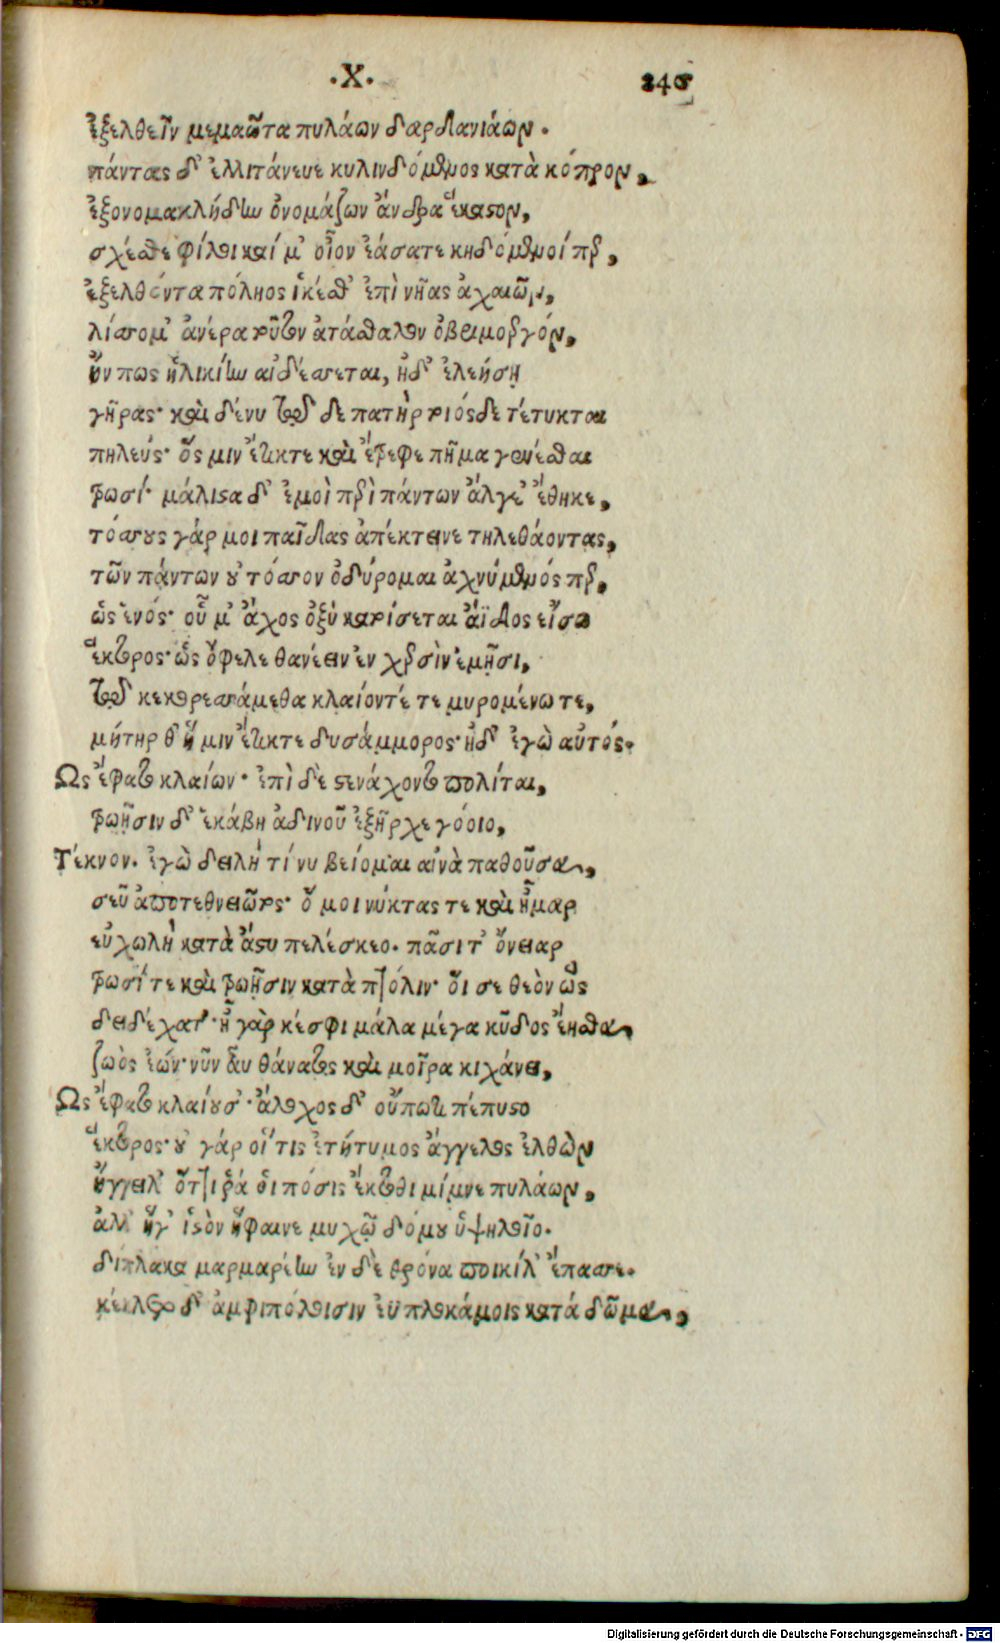 ·Χ· 240
ἐξελθεῖν μεμαῶτα πυλάων δαρδανιάων.
πάντας δ᾽ ἐλλιτάνευε κυλινδόμενος κατὰ κόπρον,
ἐξονομακλήδην ὀνομάζων ἄνδρα ἕκαστον,
σχέσθε φίλοι καί μ᾽ οἶον ἐάσατε κηδόμενοί περ,
ἐξελθόντα πόληος ἱκέσθ᾽ ἐπὶ νῆας ἀχαιῶν,
λίσσομ᾽ ἀνέρα τοῦτον ἀτάσθαλον ὀβριμοεργόν,
ἤν πως ἡλικίην αἰδέσσεται, ἠδ᾽ ἐλεήσῃ
γῆρας· καὶ δένυ τῷδε πατὴρ τοιόσδε τέτυκται
πηλεύς· ὅς μιν ἔτικτε καὶ ἔτρεφε πῆμα γενέσθαι
τρωσί· μάλιστα δ᾽ ἐμοὶ περὶ πάντων ἄλγε᾽ ἔθηκε,
τόσσους γάρ μοι παῖδας ἀπέκτεινε τηλεθάοντας,
τῶν πάντων οὐ τόσσον ὀδύρομαι ἀχνύμενός περ,
ὡς ἑνός· οὗ μ᾽ ἄχος ὀξὺ κατοίσεται ἄϊδος εἴσω
ἕκτορος· ὡς ὄφελε θανέειν ἐν χερσὶν ἐμῇσι,
τῷ κε κορεσσάμεθα κλαίοντέ τε μυρομένω τε,
μήτηρ θ᾽ ἥ μιν ἔτικτε δυσάμμορος· ἠδ᾽ ἐγὼ αὐτός.
Ὣς ἔφατο κλαίων· ἐπὶ δὲ στενάχοντο πολίται,
τρωῇσιν δ᾽ ἑκάβη ἀδινοῦ ἐξῆρχε γόοιο,
Τέκνον. ἐγὼ δειλὴ τί νυ βείομαι αἰνὰ παθοῦσα,
σεῦ ἀποτεθνειῶτος· ὅ μοι νύκτας τε καὶ ἦμαρ
εὐχωλὴ κατὰ ἄστυ πελέσκεο. πᾶσι τ᾽ ὄνειαρ
τρωσί τε καὶ τρωῇσιν κατὰ πτόλιν· οἵ σε θεὸν ὣς
δειδέχατ᾽· ἦ γὰρ κέ σφι μάλα μέγα κῦδος ἔησθα,
ζωὸς ἐών· νῦν αὖ θάνατος καὶ μοῖρα κιχάνει,
Ὣς ἔφατο κλαίουσ᾽· ἄλοχος δ᾽ οὔπω τι πέπυστο
ἕκτορος· οὐ γάρ οἵ τις ἐτήτυμος ἄγγελος ἐλθὼν
ἤγγειλ᾽ ὅττι ῥά οἱ πόσις ἔκτοθι μίμνε πυλάων,
ἀλλ᾽ ἥγ᾽ ἱστὸν ὕφαινε μυχῷ δόμου ὑψηλοῖο.
δίπλακα μαρμαρέην ἐν δὲ θρόνα ποικίλ᾽ ἔπασσε.
κέκλετο δ᾽ ἀμφιπόλοισιν ἐϋπλοκάμοις κατά δῶμα,
Digitalisierung gefördert durch die Deutsche Forschungsgemeinschaft - DFG